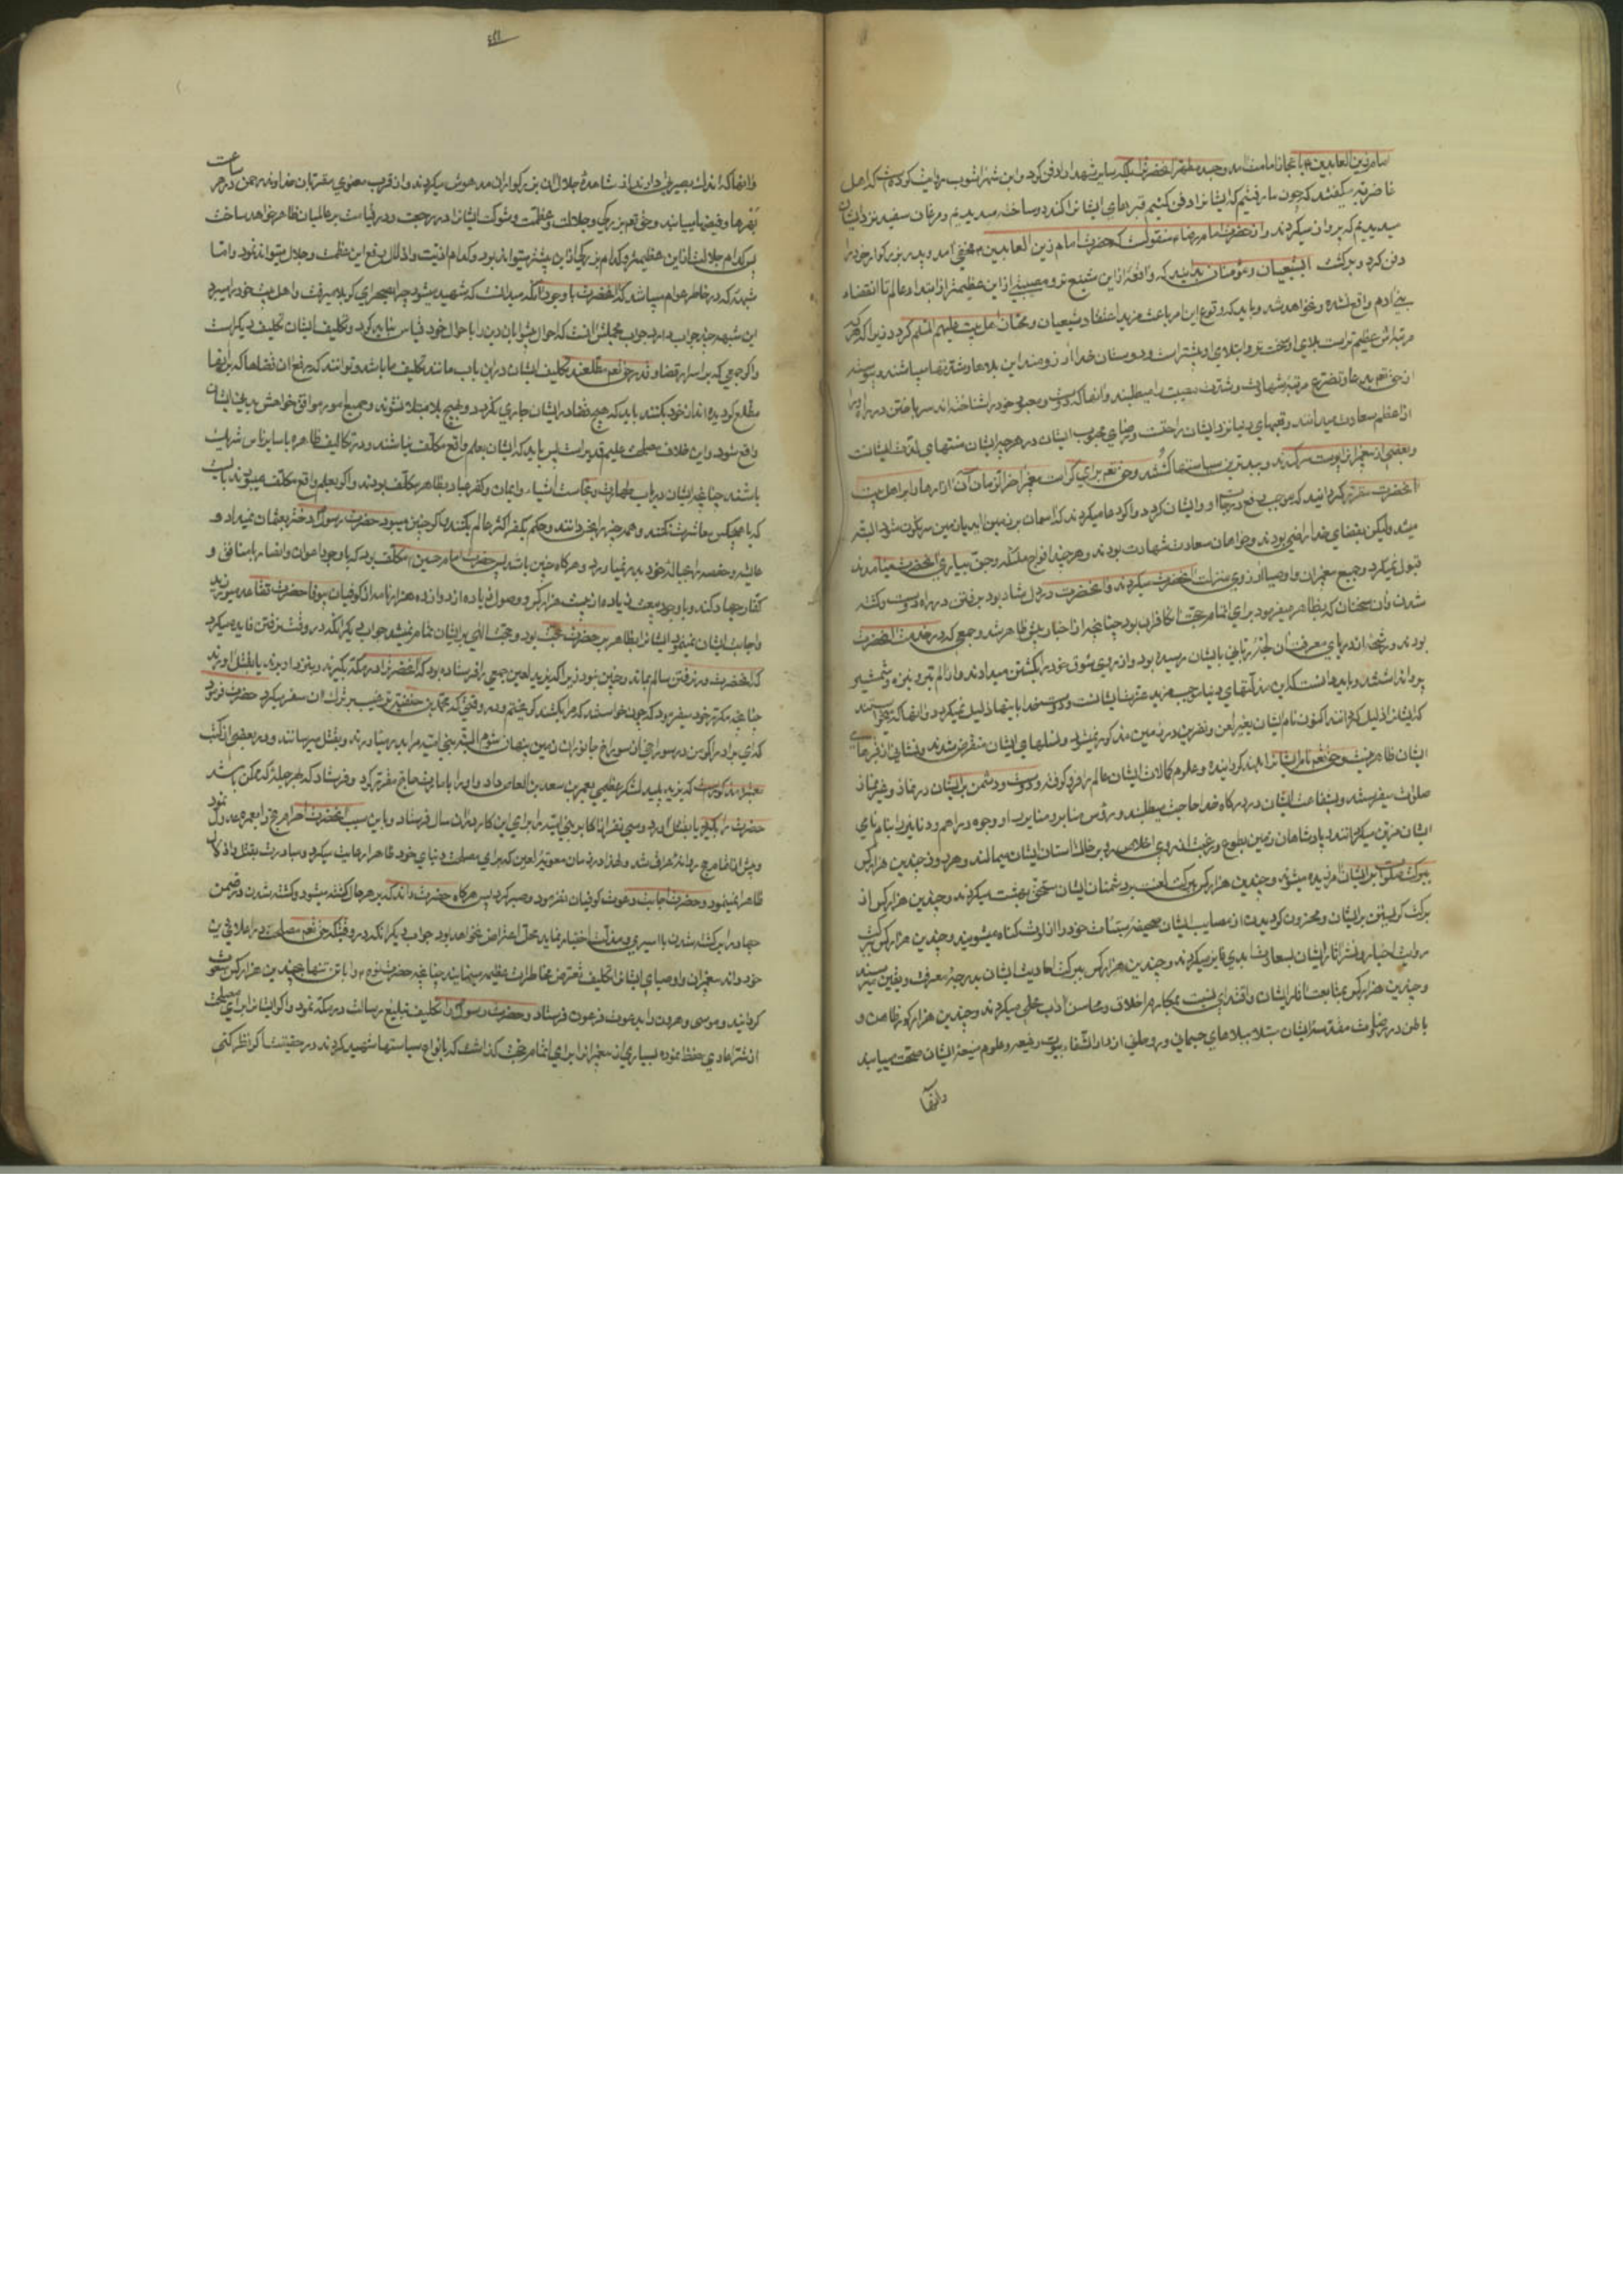 امام زین العابدین ع باعجاز امامت آمد و جسد مطهر آنحضرت بلکه سایر شهدا را دفن کرد و ابن شهرآشوب روایت کرده است که اهل
غاضریه میگفتند که چون ما رفتیم که ایشانرا دفن کنیم قبرهای ایشانرا کنده و ساخته میدیدیم و مرغان سفید نزد ایشان
میدیدیم که پرواز میکردند و از حضرت امام رضا ع منقولست که حضرت امام زین العابدین ع مخفی آمد و پدر بزرگوار خود را
دفن کرد و برگشت ای شیعیان و مؤمنان بدانید که واقعه از این شنیع تر و مصیبتی از این عظیمتر از ابتداء عالم تا انقضاء
بنی آدم واقع نشده و نخواهد شد و باید که وقوع این امر باعث مزید اعتقاد شیعیان و محبان اهل بیت علیهم السلم گردد زیرا که هر که
مرتبه اش عظیم تر است بلای او سخت تر و ابتلای او بیشتر است و دوستان خدا آرزومند این بلاها و شدتها میباشند و پیوسته
از حق تعم بدعا و تضرع مرتبه شهادت و شدت مصیبت را میطلبند و آنها که دوست و محبوب خود را شناخته اند سر باختن در راه او را
از اعظم سعادت میدانند و تعبهای دنیا نزد ایشان راحتست و رضای محبوب ایشان در هر چیز ایشان منتهای لذت ایشانست
و بعضی از پیغمبرانرا پوست سر کندند و ببدترین سیاستها کشتند و حق تعم برای کرامت پیغمبر آخر الزمان آن آزارها را بر اهل بیت
آنحضرت مقرر گردانید که موجب رفع درجات او و ایشان گردد و اگر دعا میکردند که آسمان بر زمین آید یا زمین سرنگون شود البته
میشد ولیکن بقضای خدا راضی بودند و خواهان سعادت شهادت بودند و هر چند افواج ملئکه و جن بیاری آنحضرت میآمدند
قبول نمیکرد و جمیع پیغمبران و اوصیا آرزوی منزلت آنحضرت میکردند و آنحضرت در دل شاد بود برفتن در راه دوست و کشته
شدن و آن سخنان که بظاهر میفرمود برای اتمام حجت بر کافران بود چنانچه از اخبار پیش ظاهر شد و جمعی که در خدمت آنحضرت
بودند و رشحه از دریای معرفت آن لجۀ ربانی بایشان رسیده بود و از روی شوق خود را بکشتن میدادند و از الم تیر و نیزه و شمشیر
پروا نداشتند و باید دانست که این مذلتهای دنیا موجب مزید عزت ایشانست و دوست خدا باینها ذلیل نمیگردد و آنها که میخواستند
که ایشانرا ذلیل گردانند اکنون نام ایشان بغیر لعن و نفرین در زمین مذکور نمیشود و نسلهای ایشان منقرض شدند و نشانی از قبرهای
ایشان ظاهر نیست و حق تعم نام ایشانرا بلند گردانیده و علوم و کمالات ایشان عالم را فرو گرفته و دوست و دشمن بر ایشان در نماز و غیر نماز
صلوات میفرستند و بشفاعت ایشان در درگاه خدا حاجت میطلبند و رؤس منابر و منایر و وجوه دراهم و دنانیر را بنام نامی
ایشان مزین میگردانند و پادشاهان زمین بطوع و رغبت از روی اخلاص رو بر خاک آستان ایشان میمالند و هر روز چندین هزار کس
ببرکت صلوات بر ایشان آمرزیده میشوند و چندین هزار کس ببرکت لعنت بر دشمنان ایشان مستحق بهشت میگردند و چندین هزار کس از
برکت گریستن بر ایشان و محزون گردیدن از مصایب ایشان صحیفه سیئات خود را از لوث گناه میشویند و چندین هزار کس ببرکت
روایت اخبار و نشر آثار ایشان بسعادت ابدی فایز میگردند و چندین هزار کس ببرکت احادیث ایشان بدرجۀ معرفت و یقین میرسند
و چندین هزار کس بمتابعت آثار ایشان و اقتدای بسنت بمکارم اخلاق و محاسن آداب محلی میگردند و چندین هزار کور ظاهر و
باطن در روضات مقدسه ایشان مبتلا ببلاهای جسمانی و روحانی از دار الشفاء بیوت رفیعه و علوم منیعه ایشان صحت مییابند
و آنها
و آنها که اندک بصیرتی دارند از مشاهدۀ جلال آن بزرگواران مدهوش میگردند و از قرب معنوی مقربان خداوند رحمن در هر ساعت
بهرها و فیضها مییابند و حق تعم بزرگی و جلالت و عظمت و شوکت ایشانرا در رجعت و در قیامت بر عالمیان ظاهر خواهد ساخت
پس کدام جلالت از این عظیمتر و کدام بزرگی از این بیشتر میتواند بود و کدام اذیت و اذلال رفع این عظمت و جلال میتواند نمود و اما
شبهۀ که در خاطر عوام میباشد که آنحضرت با وجود آنکه میدانست که شهید میشود چرا بصحرای کربلا میرفت و اهل بیت خود را میبرد
این شبهه چند جواب دارد جواب مجملش آنست که احوال پیشوایان دین را با احوال خود قیاس نباید کرد و تکلیف ایشان تکلیف دیگر است
و اگر جمعی که بر اسرار قضا و قدر حق تعم مطلعند تکلیف ایشان در این باب مانند تکلیف ما باشد و توانند که رفع آن قضاها که بر آنها
مطلع گردیده اند از خود بکنند باید که هیچ قضا در ایشان جاری نگردد و بهیچ بلا مبتلا نشوند و جمیع امور موافق خواهش بدنی ایشان
واقع شود و این خلاف مصلحت علیم قدیر است پس باید که ایشان بعلم واقع مکلف نباشند و در تکالیف ظاهره با سایر ناس شریک
باشند چنانچه ایشان در باب طهارت و نجاست اشیاء و ایمان و کفر عباد بظاهر مکلف بودند و اگر بعلم واقع مکلف میبودند بایست
که با هیچکس معاشرت نکنند و همه چیز را نجس دانند و حکم بکفر اکثر عالم بکنند و اگر چنین میبود حضرت رسول ص دختر بعثمان نمیداد و
عایشه و حفصه را بحبالۀ خود در نمیاورد و هر گاه چنین باشد پس حضرت امام حسین ع مکلف بود که با وجود اعوان و انصار با منافق و
کفار جهاد کند و با وجود بیعت زیاده از بیست هزار کس و وصول زیاده از دوازده هزار نامه از کوفیان بیوفا حضرت تقاعد میورزید
و اجابت ایشان نمیفرمود ایشانرا بظاهر بر حضرت حجت بود و حجت الهی بر ایشان تمام نمیشد جواب دیگر آنکه در وقت نرفتن فایده میکرد
که آنحضرت در نرفتن سالم بماند و چنین نبود زیرا که یزید لعین جمعی را فرستاده بود که آنحضرت را در مکه بگیرند و بنزد او برند یا بقتل آورند
چنانچه مکرر خود میفرمود که چون خواستند که مرا بکشند گریختم و در وقتی که محمد بن حنفیه ترغیب بر ترک آن سفر میکرد حضرت فرمود
که ای برادر اگر من در سوراخی از سوراخ جانوران زمین پنهان شوم البته بنی امیه مرا بدر میآورند و بقتل میرسانند و در بعضی از کتب
معتبره مذکور است که یزید پلید لشکر عظیمی بعمرو بن سعد بن العاص داد و او را بامارت حاج مقرر کرد و فرستاد که بهر حیله که ممکن باشد
حضرت را بگیرد یا بقتل آورد و سی نفر از اکابر بنی امیه را برای این کار در آن سال فرستاد و باین سبب آنحضرت احرام حج را بعمره عدول نمود
و پیش از اتمام حج روانۀ عراق شد و لهذا در زمان معویه لعین که برای مصلحت دنیای خود ظاهرا رعایت میکرد و مبادرت بقتل امام
ظاهرا نمینمود و حضرت اجابت دعوت کوفیان نفرمود و صبر کرد پس هرگاه حضرت داند که بر هر حال کشته میشود و کشته شدن در ضمن
جهاد را بر کشته شدن با اسیری و مذلت اختیار نماید محل اعتراض نخواهد بود جواب دیگر آنکه در وقتیکه حق تعم مصلحت در اعلای دین
خود داند پیغمبران و اوصیای ایشانرا تکلیف تعرض مخاطرات عظیمه مینماید چنانچه حضرت نوح ع را با تن تنها بچندین هزار کس مبعوث
گردانید و موسی و هرون را بدعوت فرعون فرستاد و حضرت رسول ص را تکلیف تبلیغ رسالت در مکه نمود و اگر ایشانرا برای مصلحت
از شر اعادی حفظ نموده بسیاری از پیغمبرانرا برای اتمام حجت گذاشت که بانواع سیاستها شهید کردند در حقیقت اگر نظر کنی